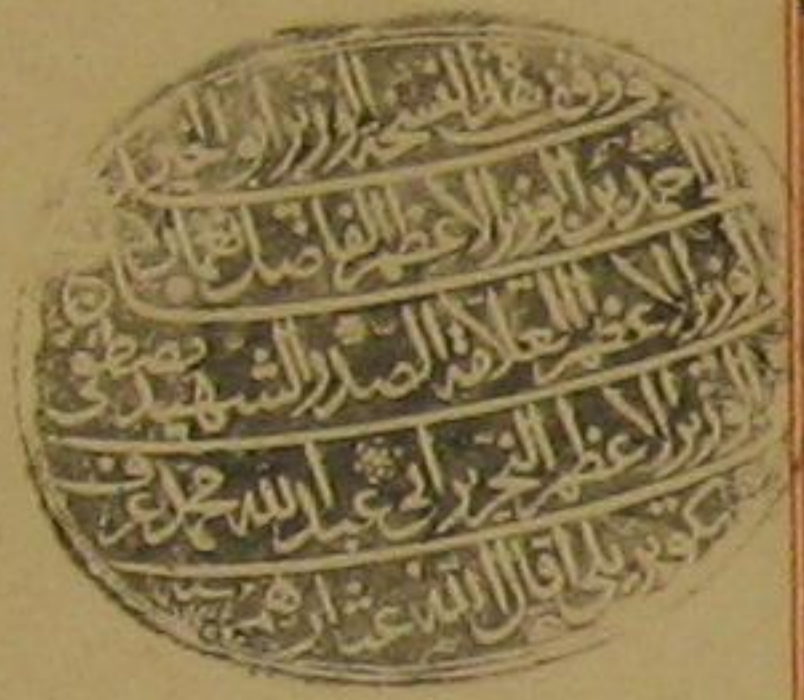 وقف هذه النسخة الوزير أبو الخير
الحاج أحمد بن الوزير الأعظم الفاضل نعمان
الوزير الأعظم العلامة الصدر الشهيد مصطفى
الوزير الأعظم النحرير أبي عبد الله محمد عرف
بكوبريلي أقال الله عثارهم